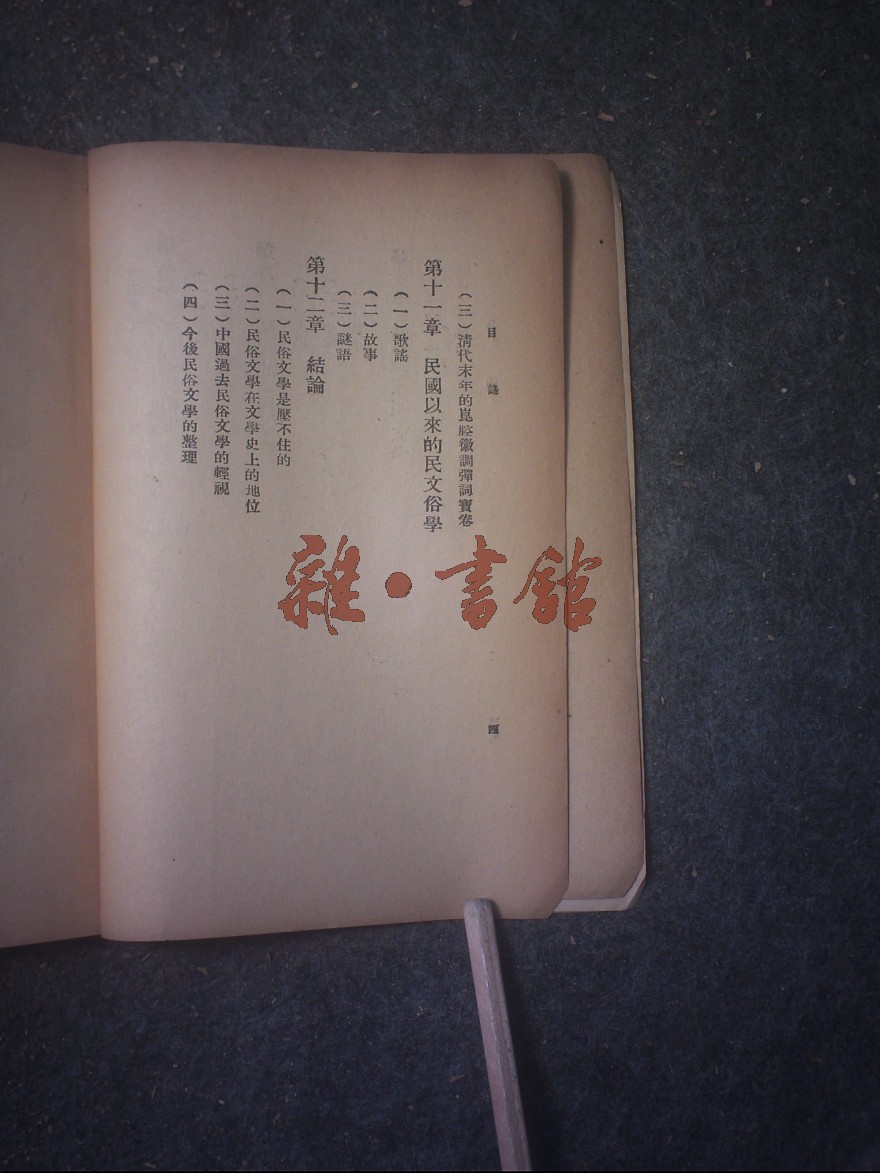 目錄
(三)清代末年的崑腔徽調彈詞寶卷
第十一章 民國以來的民文俗學
(一)歌謠
(二)故事
(三)謎語
第十二章 結論
(一)民俗文學是壓不住的
(二)民俗文學在文學史上的地位
(三)中國過去民俗文學的輕視
(四)今後民俗文學的整理
四
雜·書館